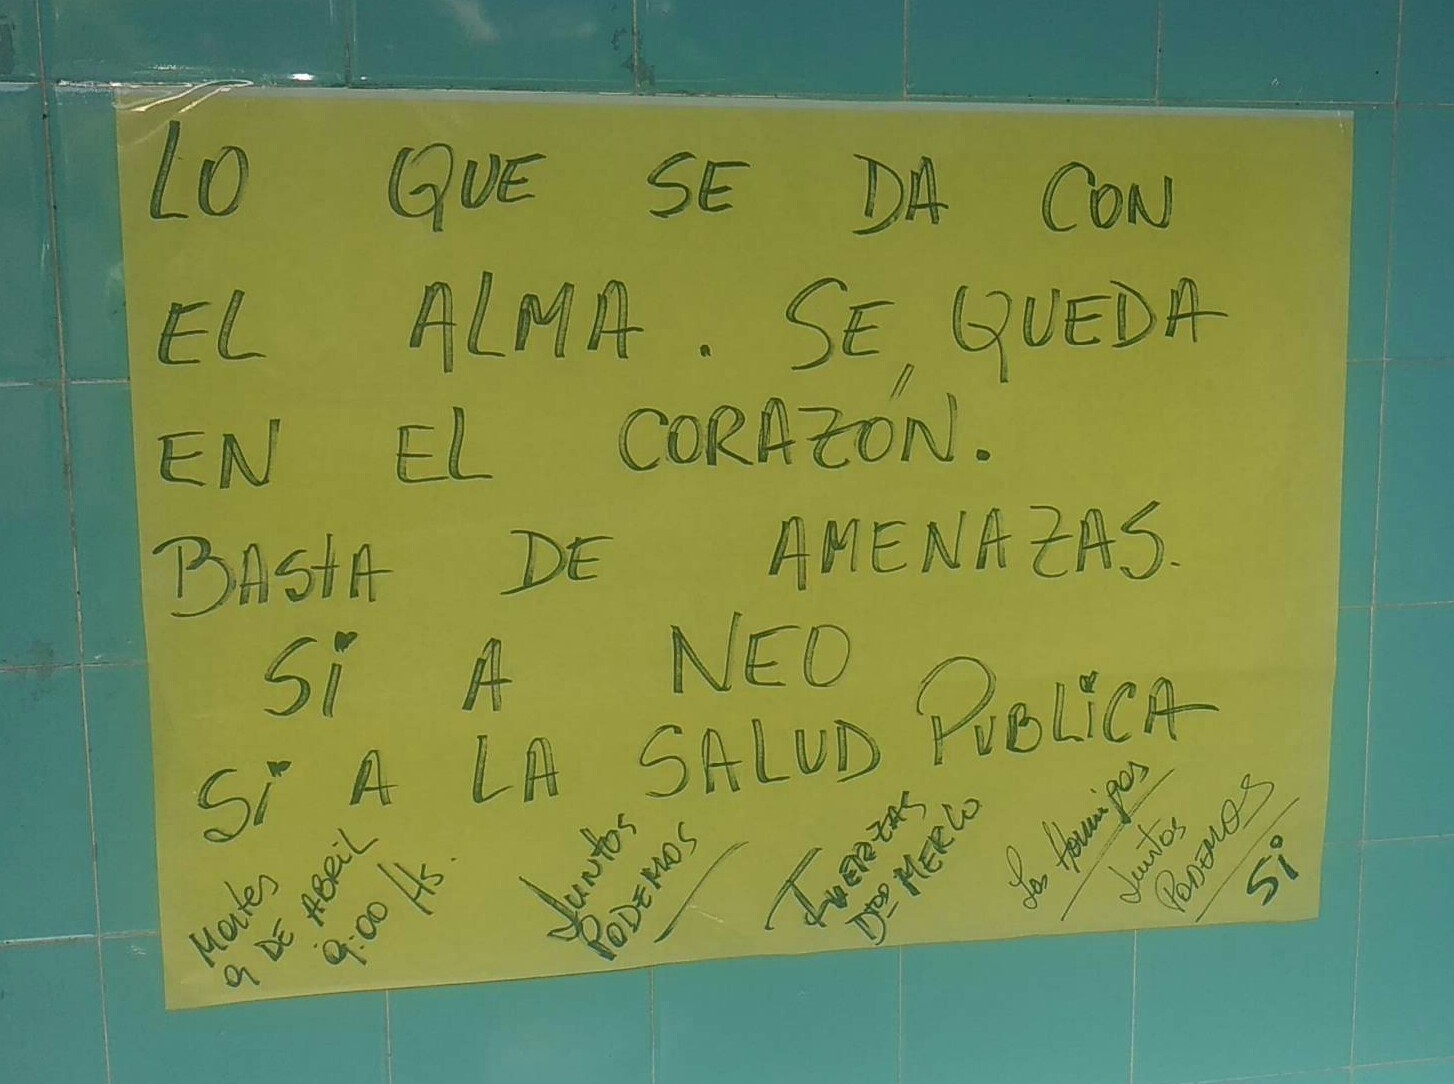 LO QUE SE DA CON
EL ALMA. SE QUEDA
EN EL CORAZÓN.
BASTA DE AMENAZAS.
Si A NEO
Si A LA SALUD PUBLiCA
Martes
9 DE ABRiL
9:00 Hs.
Juntos
PODEMOS
FUERZAS
Dtor MERLO
Las Hormigas
Juntos
PODEMOS
Si